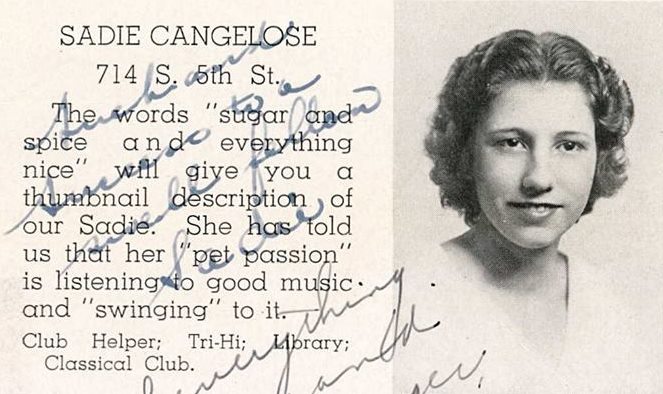 SADIE CANGELOSE
714 S. 5th St.
The words "sugar and
spice and everything
nice" will give you a
thumbnail description of
our Sadie. She has told
us that her "pet passion"
is listening to good music
and "swinging" to it.
Club Helper; Tri-Hi; Library;
Classical Club.
Luck and
success to a
swell fellow
Sadie
everything
and